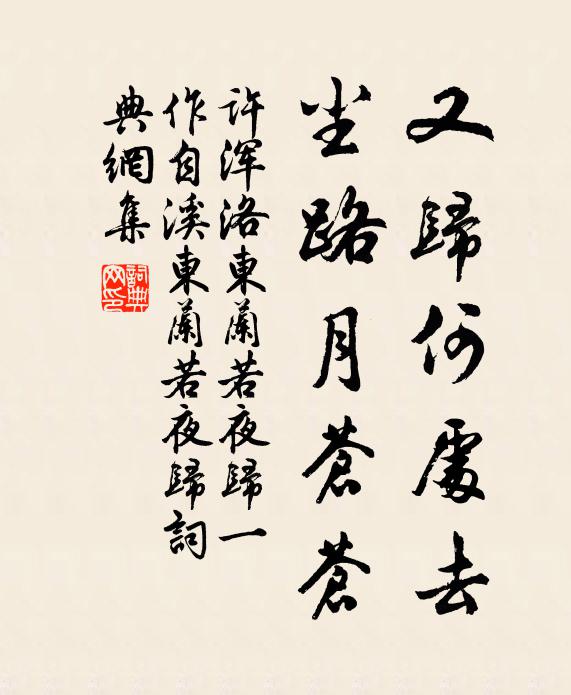 又歸何處去
尘路月蒼蒼
許渾洛東蘭若夜歸一
作自溪東蘭若夜歸詞
典網集
詞典
网印